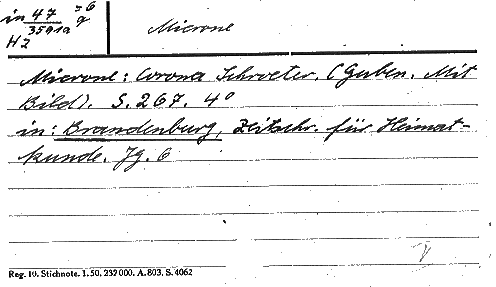 in 47 =6
3591a q
H2
Microne
Microne: Corona Schroeter. (Guben. Mit
Bild). S. 267. 4°
in: Brandenburg, Zeitschr. für Heimat-
kunde. Jg. 6
V
Reg. 10. Stichnote. 1. 50. 232000. A. 803. S. 4062